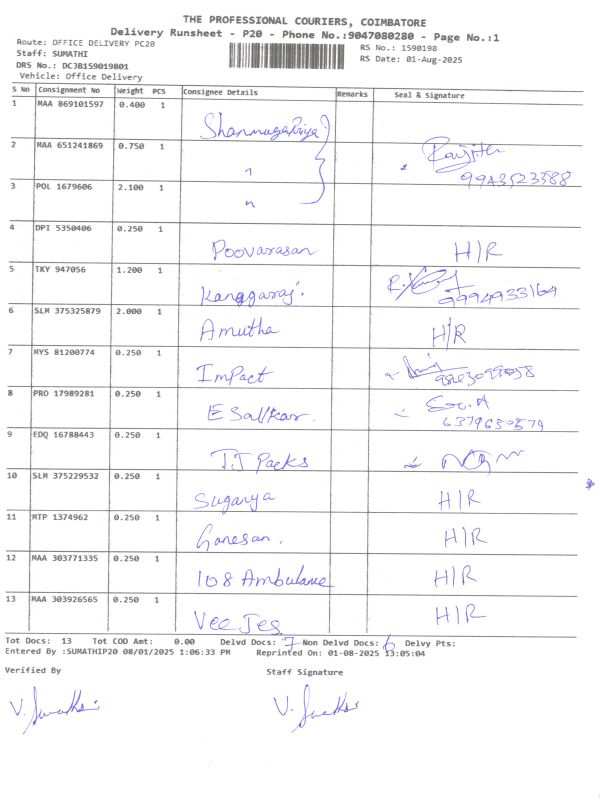 THE PROFESSIONAL COURIERS, COIMBATORE
Delivery Runsheet - P20 - Phone No.:9047080280 - Page No.:1
Route: OFFICE DELIVERY PC20
RS No.: 1590198
Staff: SUMATHI
RS Date: 01-Aug-2025
DRS No.: DCJB159019801
Vehicle: Office Delivery
S No Consignment No Weight PCS Consignee Details Remarks Seal & Signature
1 MAA 869101597 0.400 1 Shanmugapriya
2 MAA 651241869 0.750 1 " Ranjith
9943523388
3 POL 1679606 2.100 1 "
4 DPI 5350406 0.250 1 Poovarasan H/R
5 TKY 947056 1.200 1 Kanagaraj.
9994933169
6 SLM 375325879 2.000 1 Amutha H/R
7 MYS 81200774 0.250 1 ImPact
8 PRO 17989281 0.250 1
9 EDQ 16788443 0.250 1 T.T Packs
10 SLM 375229532 0.250 1 Suganya H/R
11 MTP 1374962 0.250 1 Ganesan. H/R
12 MAA 303771335 0.250 1 108 Ambulance H/R
13 MAA 303926565 0.250 1 Vee Jes H/R
Tot Docs: 13 Tot COD Amt: 0.00 Delvd Docs: 7 Non Delvd Docs: 6 Delvy Pts:
Entered By :SUMATHIP20 08/01/2025 1:06:33 PM Reprinted On: 01-08-2025 13:05:04
Verified By Staff Signature